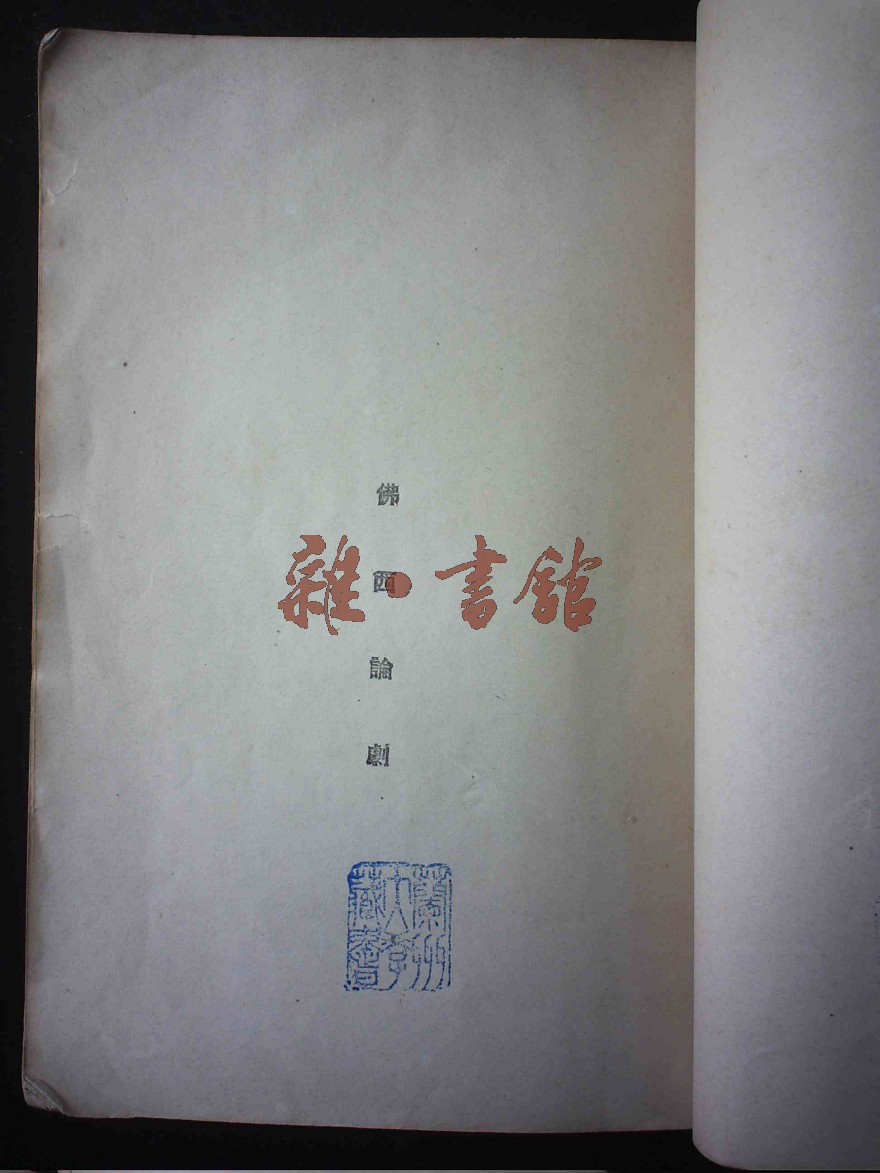 佛西論劇
雜·書館
蘭州
大學
藏書